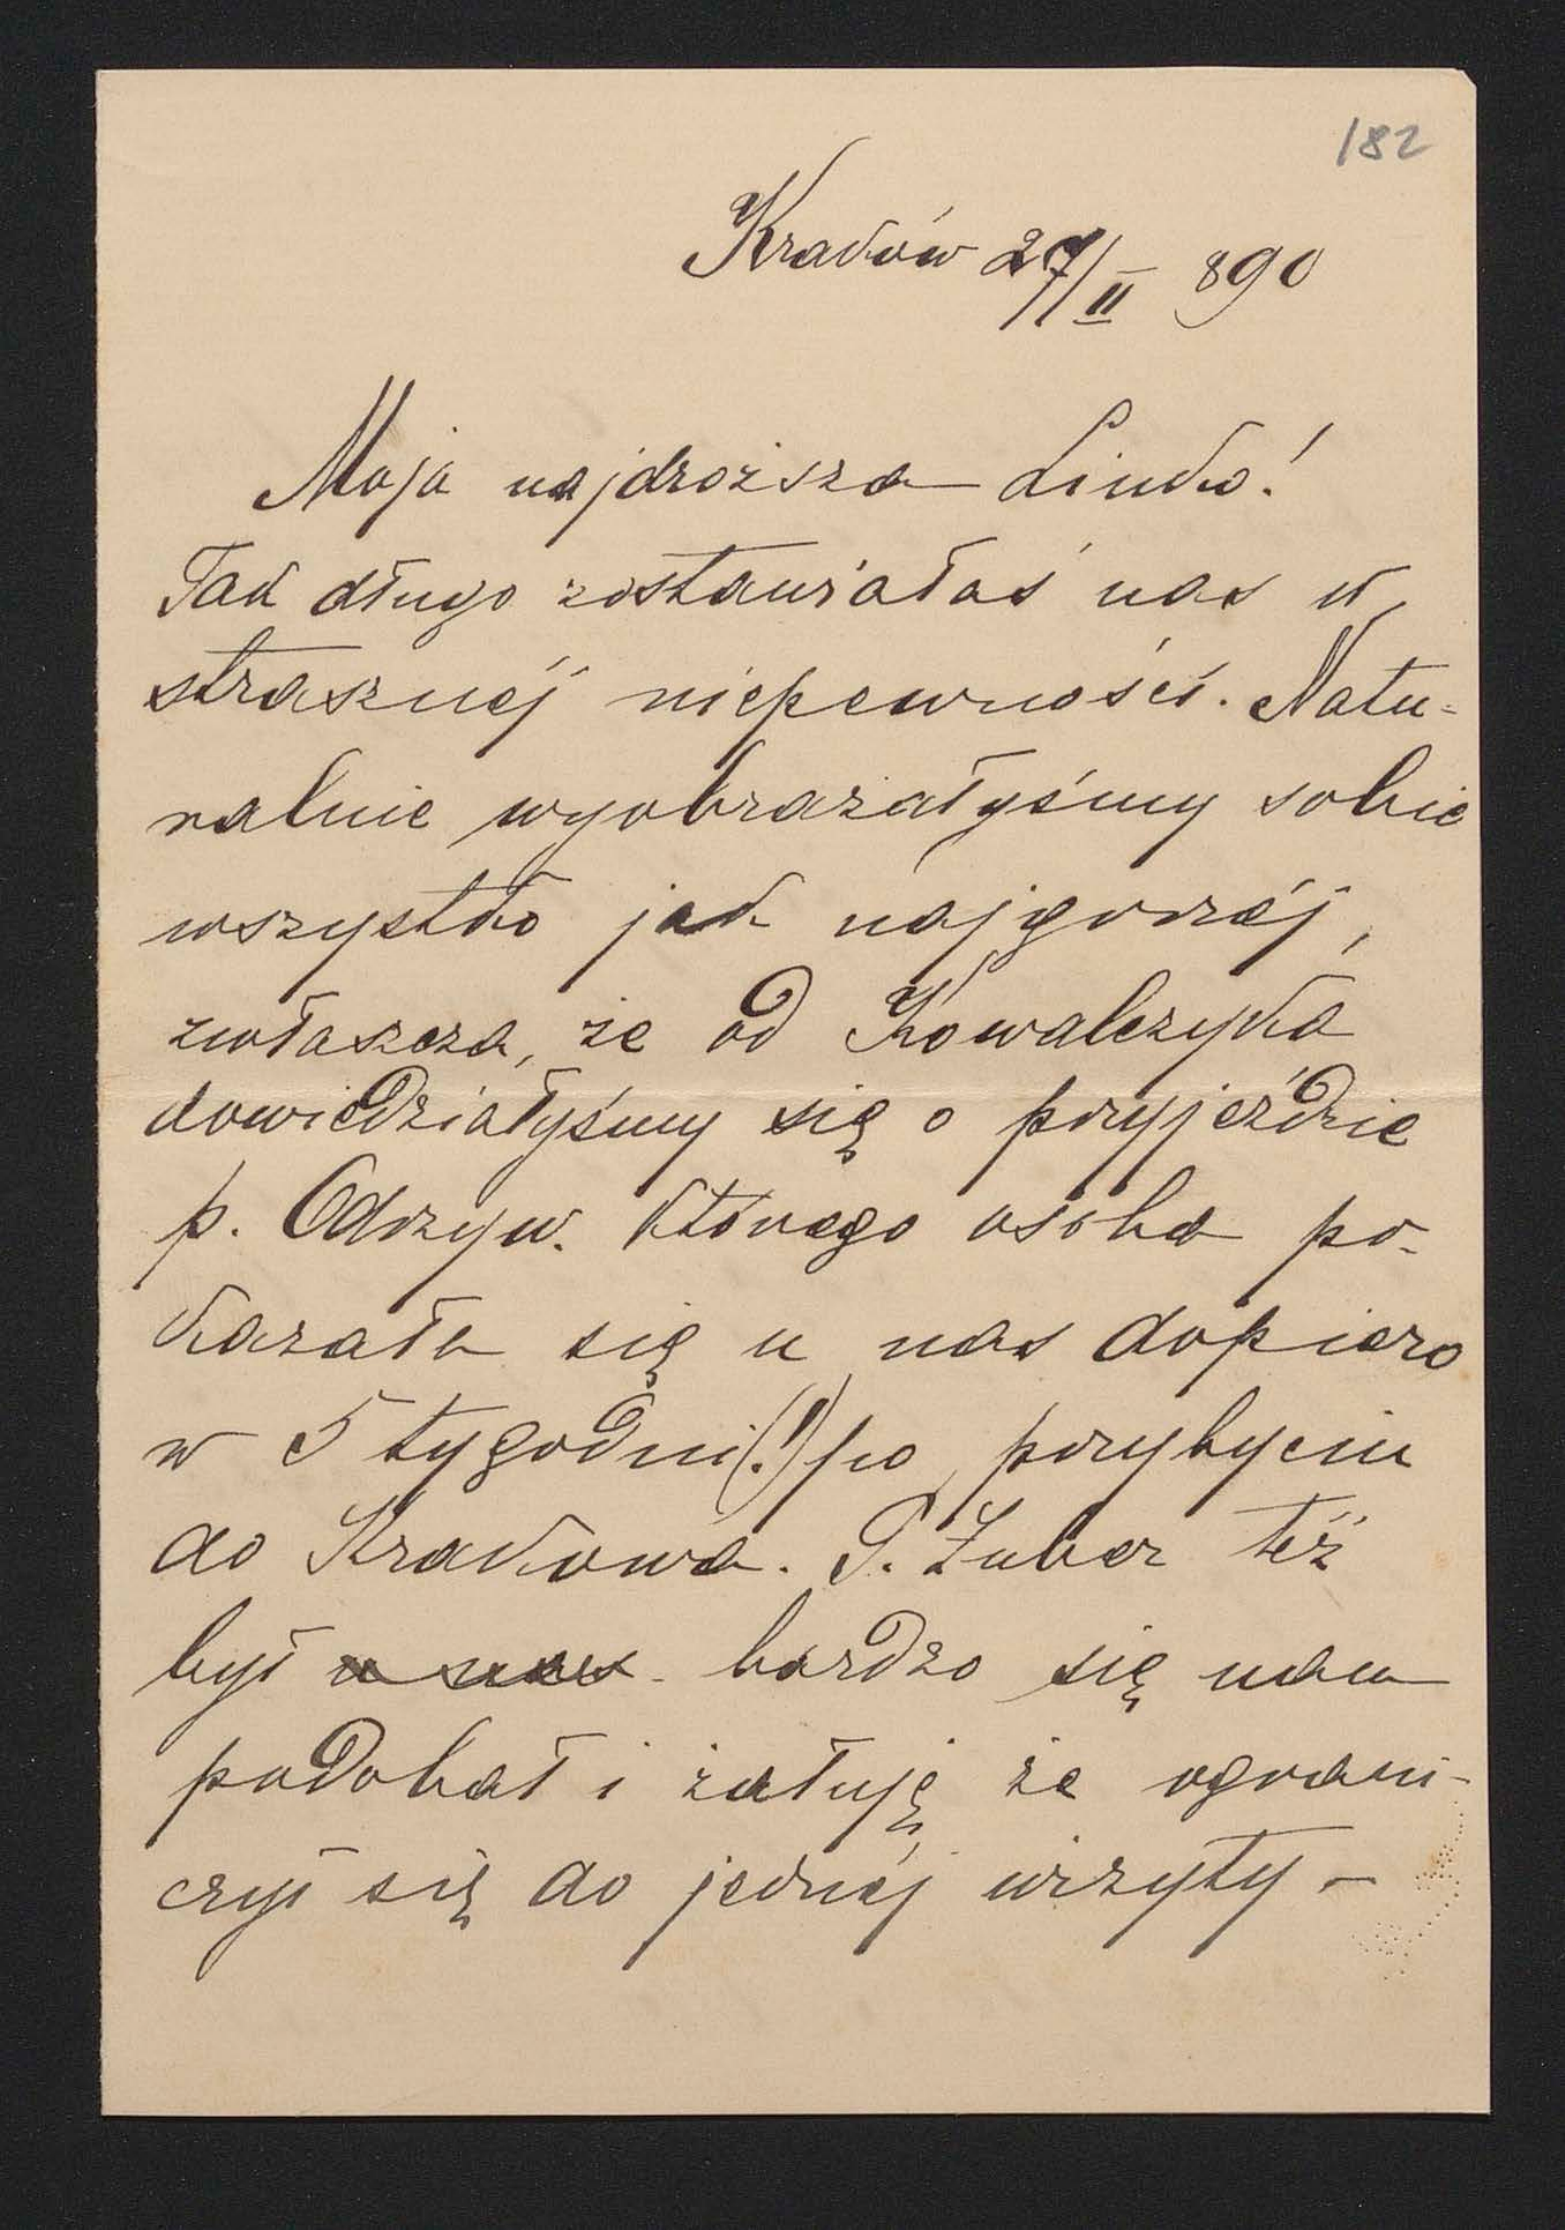 182
Kraków 27/II 890
Moja najdroższa Linko!
Tak długo zostawiałaś nas w
strasznéj niepewności. Natu-
ralnie wyobrażałyśmy sobie
wszystko jak najgorzéj,
zwłaszcza, że od Kowalczyka
dowiedziałyśmy się o przyjeździe
p. Odrzyw. którego osoba po-
kazała się u nas dopiero
w 5 tygodni(!) po przybyciu
do Krakowa. P. Zuber też
był u nas bardzo się nam
podobał i żałuję że ograni-
czył się do jednéj wizyty –